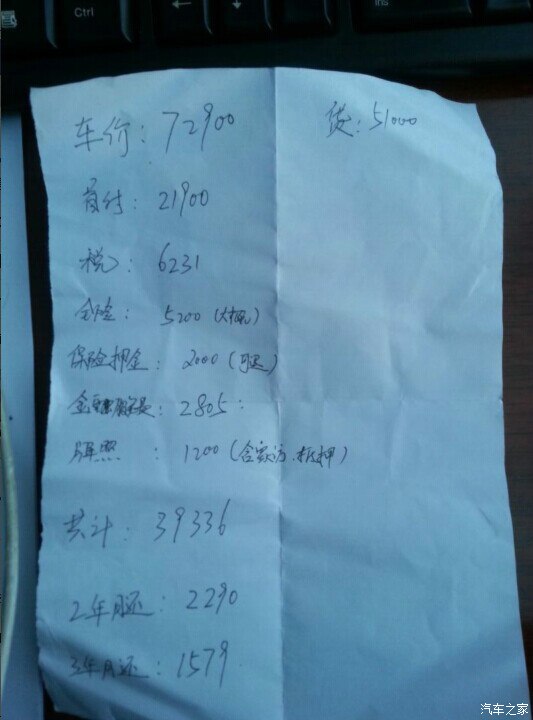 Ctrl
Ins
车价：72900
贷：51000
首付：21900
税：6231
全险：5200（大概）
保险押金：2000（可退）
金融服务费：2805
牌照：1200（含家访、抵押）
共计：39336
2年月还：2290
3年月还：1579
汽车之家